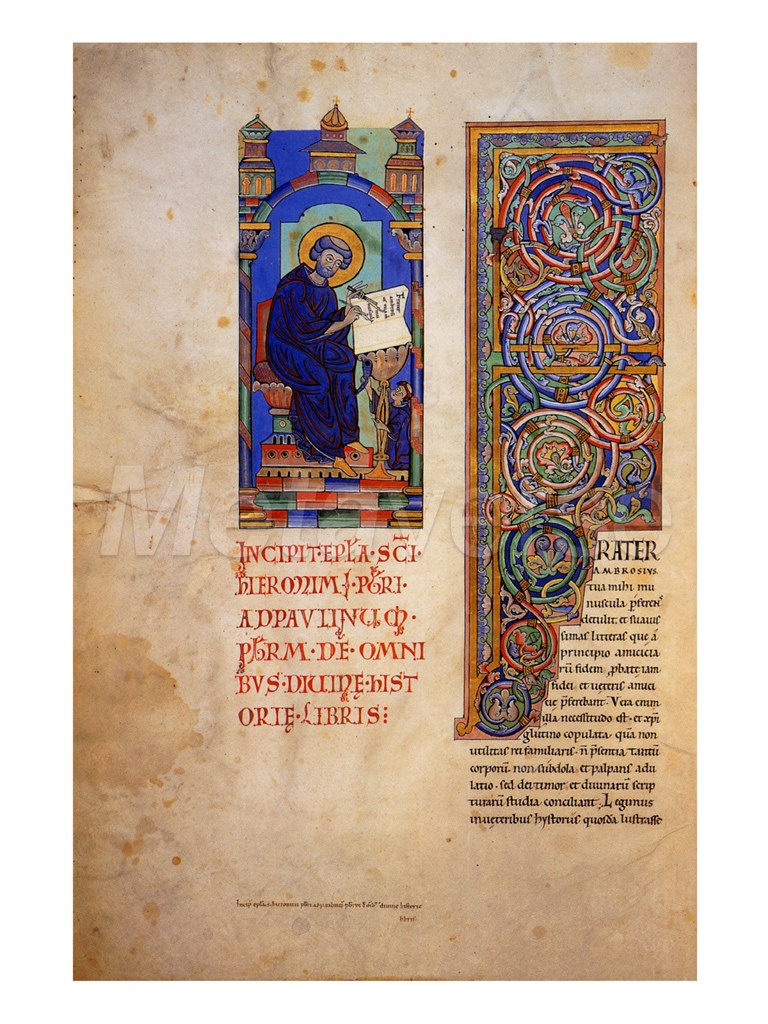 INCIPIT·EPLA·SCI·
HIERONIMI·PBRI·
ADPAVLINUM·
PBRM·DE·OMNI
BVS·DIVINE·HIST
ORIE·LIBRIS:
FRATER
AMBROSIVS
tua mihi mu
nuscula pferens
detulit· et suauis
simas litteras que a
principio amicicia
rū fidem pbate iam
fidei et ueteris amici
cie pferebant· Vera enim
illa necessitudo est· et xpi
glutino copulata· qua non
utilitas rei familiaris· n̄ psentia tantū
corporū· non subdola et palpans adu
latio· sed dei timor et diuinarū scrip
turarū studia conciliant· Legimus
inueteribus hystoriis quosdā lustrasse